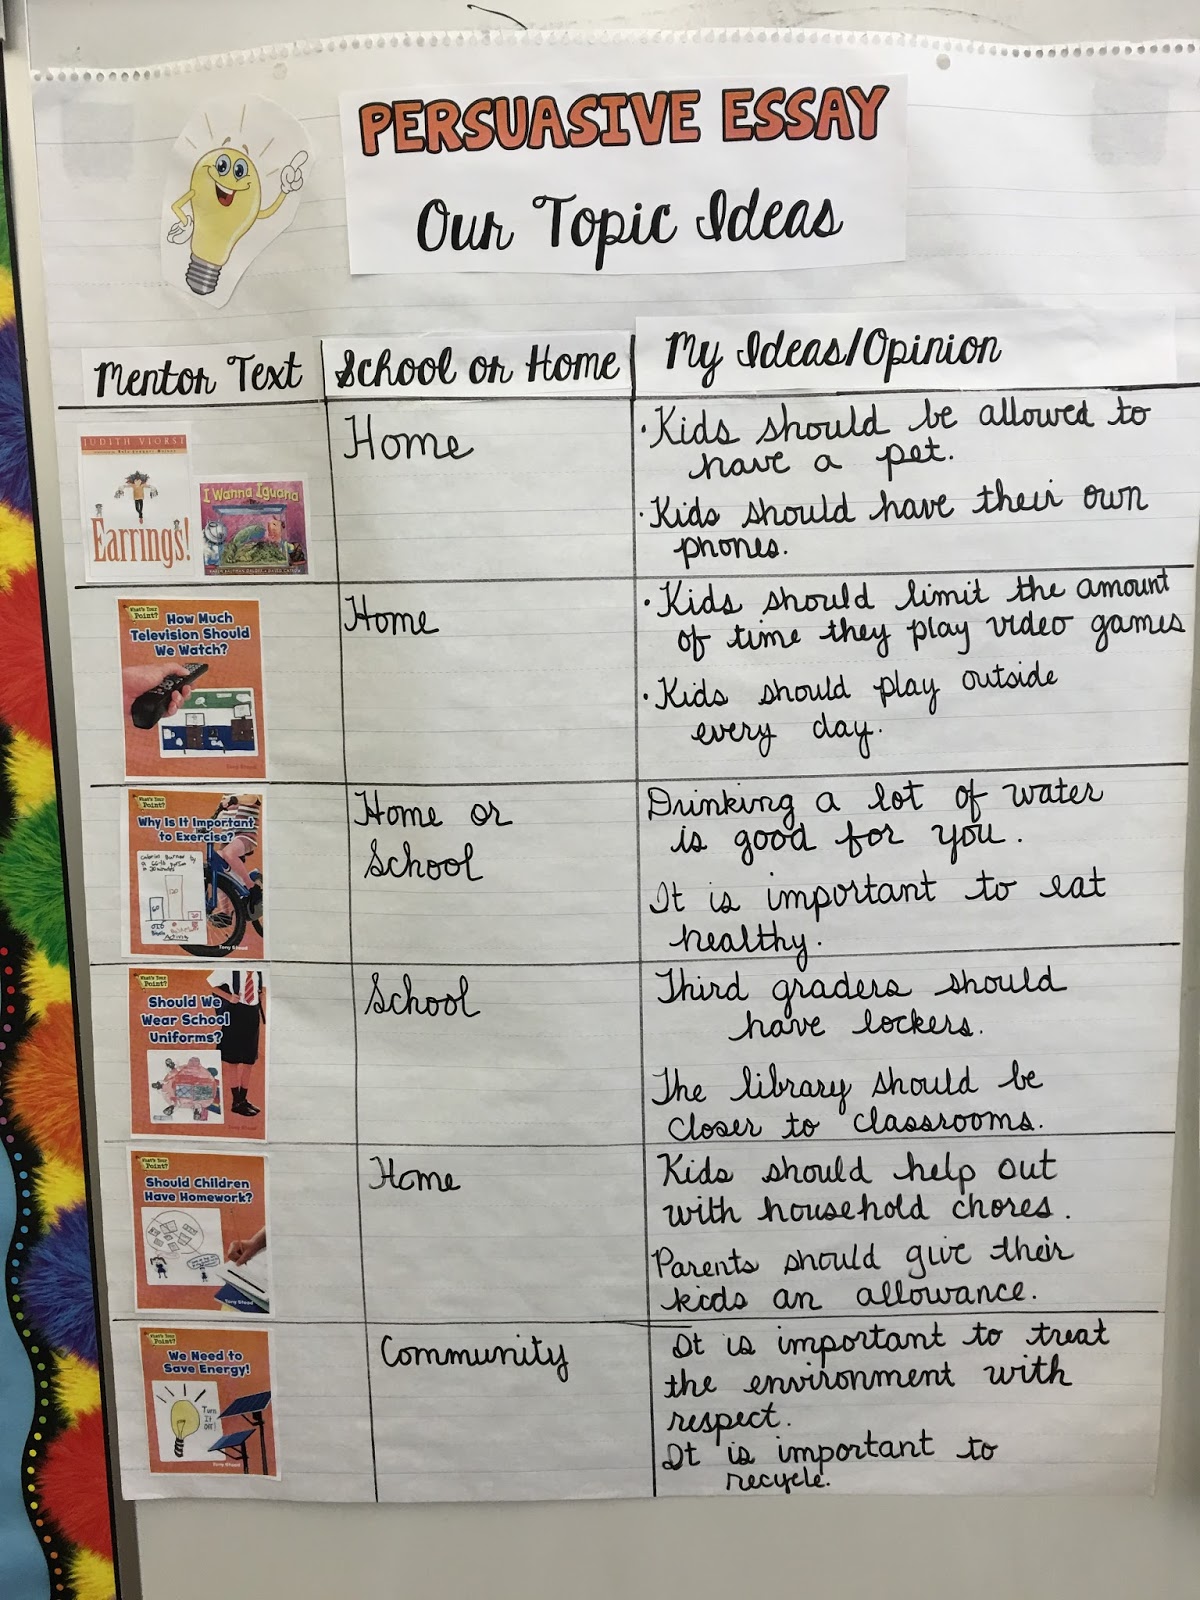 PERSUASIVE ESSAY
Our Topic Ideas
Mentor Text
School or Home
My Ideas/Opinion
JUDITH VIORST
Earrings!
I Wanna Iguana
Home
• Kids should be allowed to
have a pet.
• Kids should have their own
phones.
What's Your
Point?
How Much
Television Should
We Watch?
Tony Stead
Home
• Kids should limit the amount
of time they play video games
• Kids should play outside
every day.
What's Your
Point?
Why Is It Important
to Exercise?
Tony Stead
Home or
School
Drinking a lot of water
is good for you.
It is important to eat
healthy.
What's Your
Point?
Should We
Wear School
Uniforms?
School
Third graders should
have lockers.
The library should be
closer to classrooms.
What's Your
Point?
Should Children
Have Homework?
Tony Stead
Home
Kids should help out
with household chores.
Parents should give their
kids an allowance.
What's Your
Point?
We Need to
Save Energy!
Turn
It
Off!
Tony Stead
Community
It is important to treat
the environment with
respect.
It is important to
recycle.